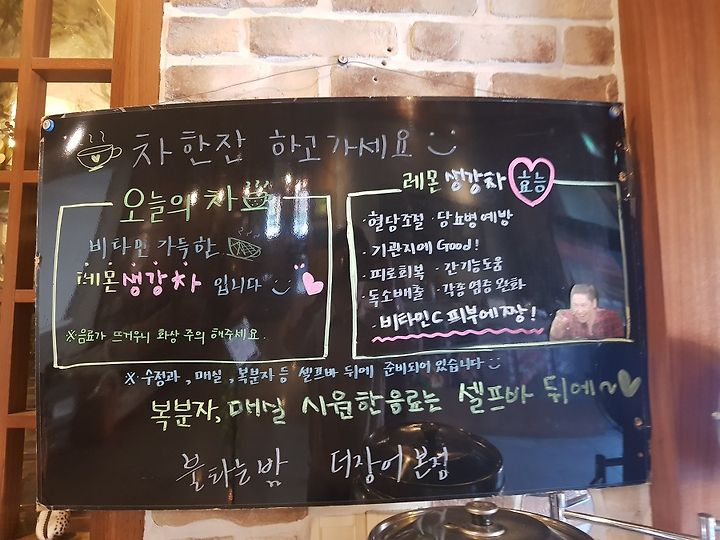 차 한잔 하고가세요
오늘의 차
비타민 가득한
레몬생강차 입니다
※음료가 뜨거우니 화상 주의 해주세요.
레몬생강차 효능
·혈당조절 ·당뇨병예방
·기관지에 Good!
·피로회복 ·간기능도움
·독소배출 ·각종염증완화
·비타민C 피부에짱!
※수정과, 매실, 복분자 등 셀프바 뒤에 준비되어있습니다
복분자, 매실 시원한음료는 셀프바 뒤에~
불타는밤 더장어본점